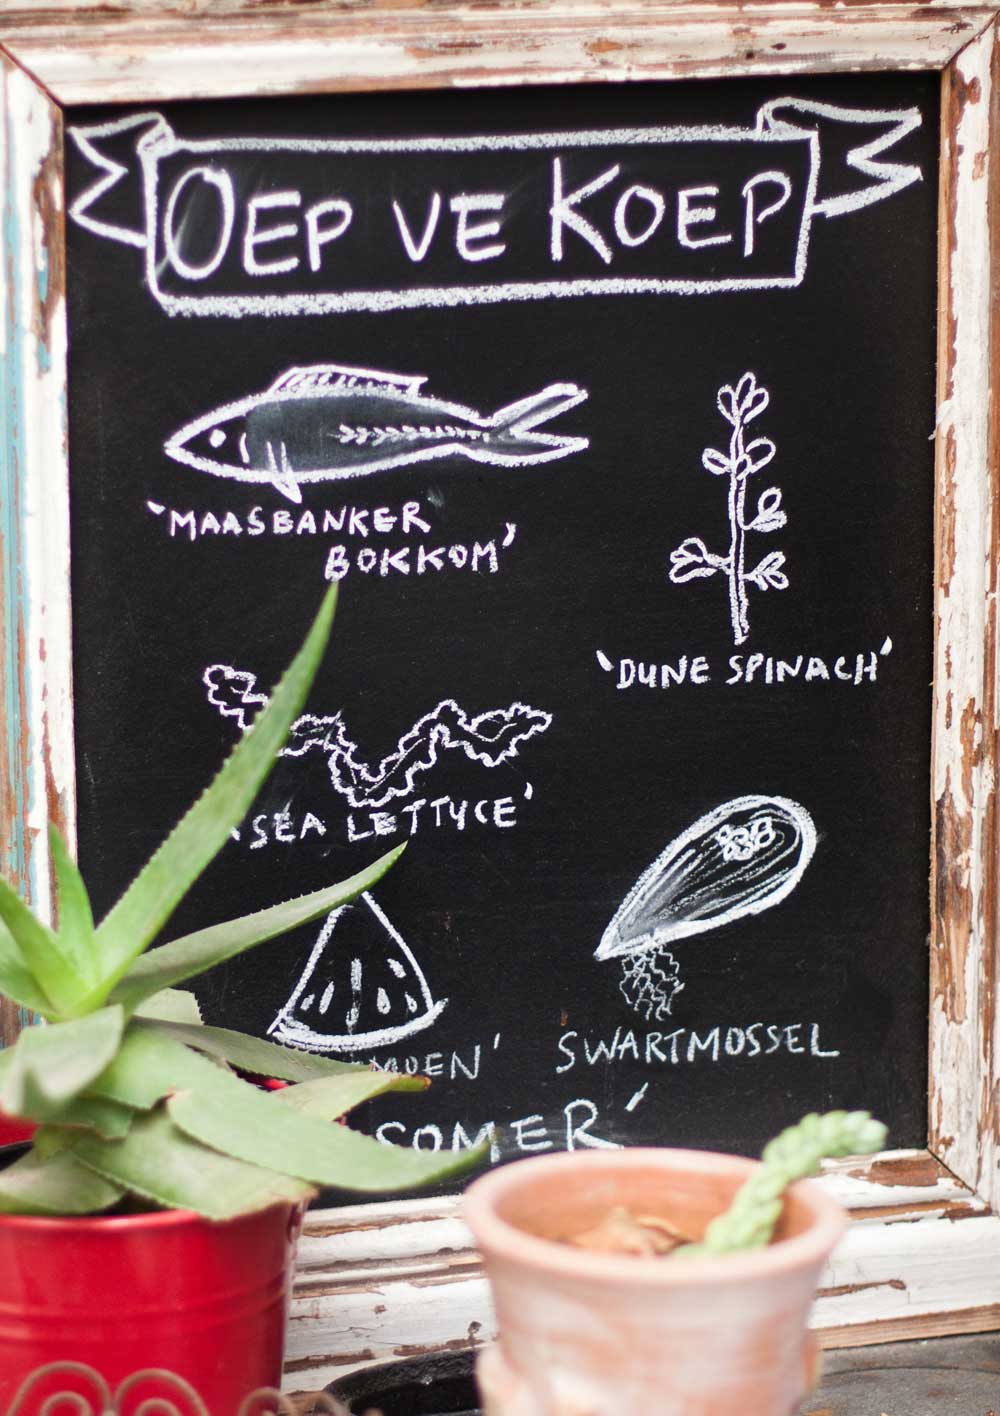 OEP VE KOEP
'MAASBANKER
BOKKOM'
'DUNE SPINACH'
'SEA LETTYCE'
SWARTMOSSEL
SOMER'